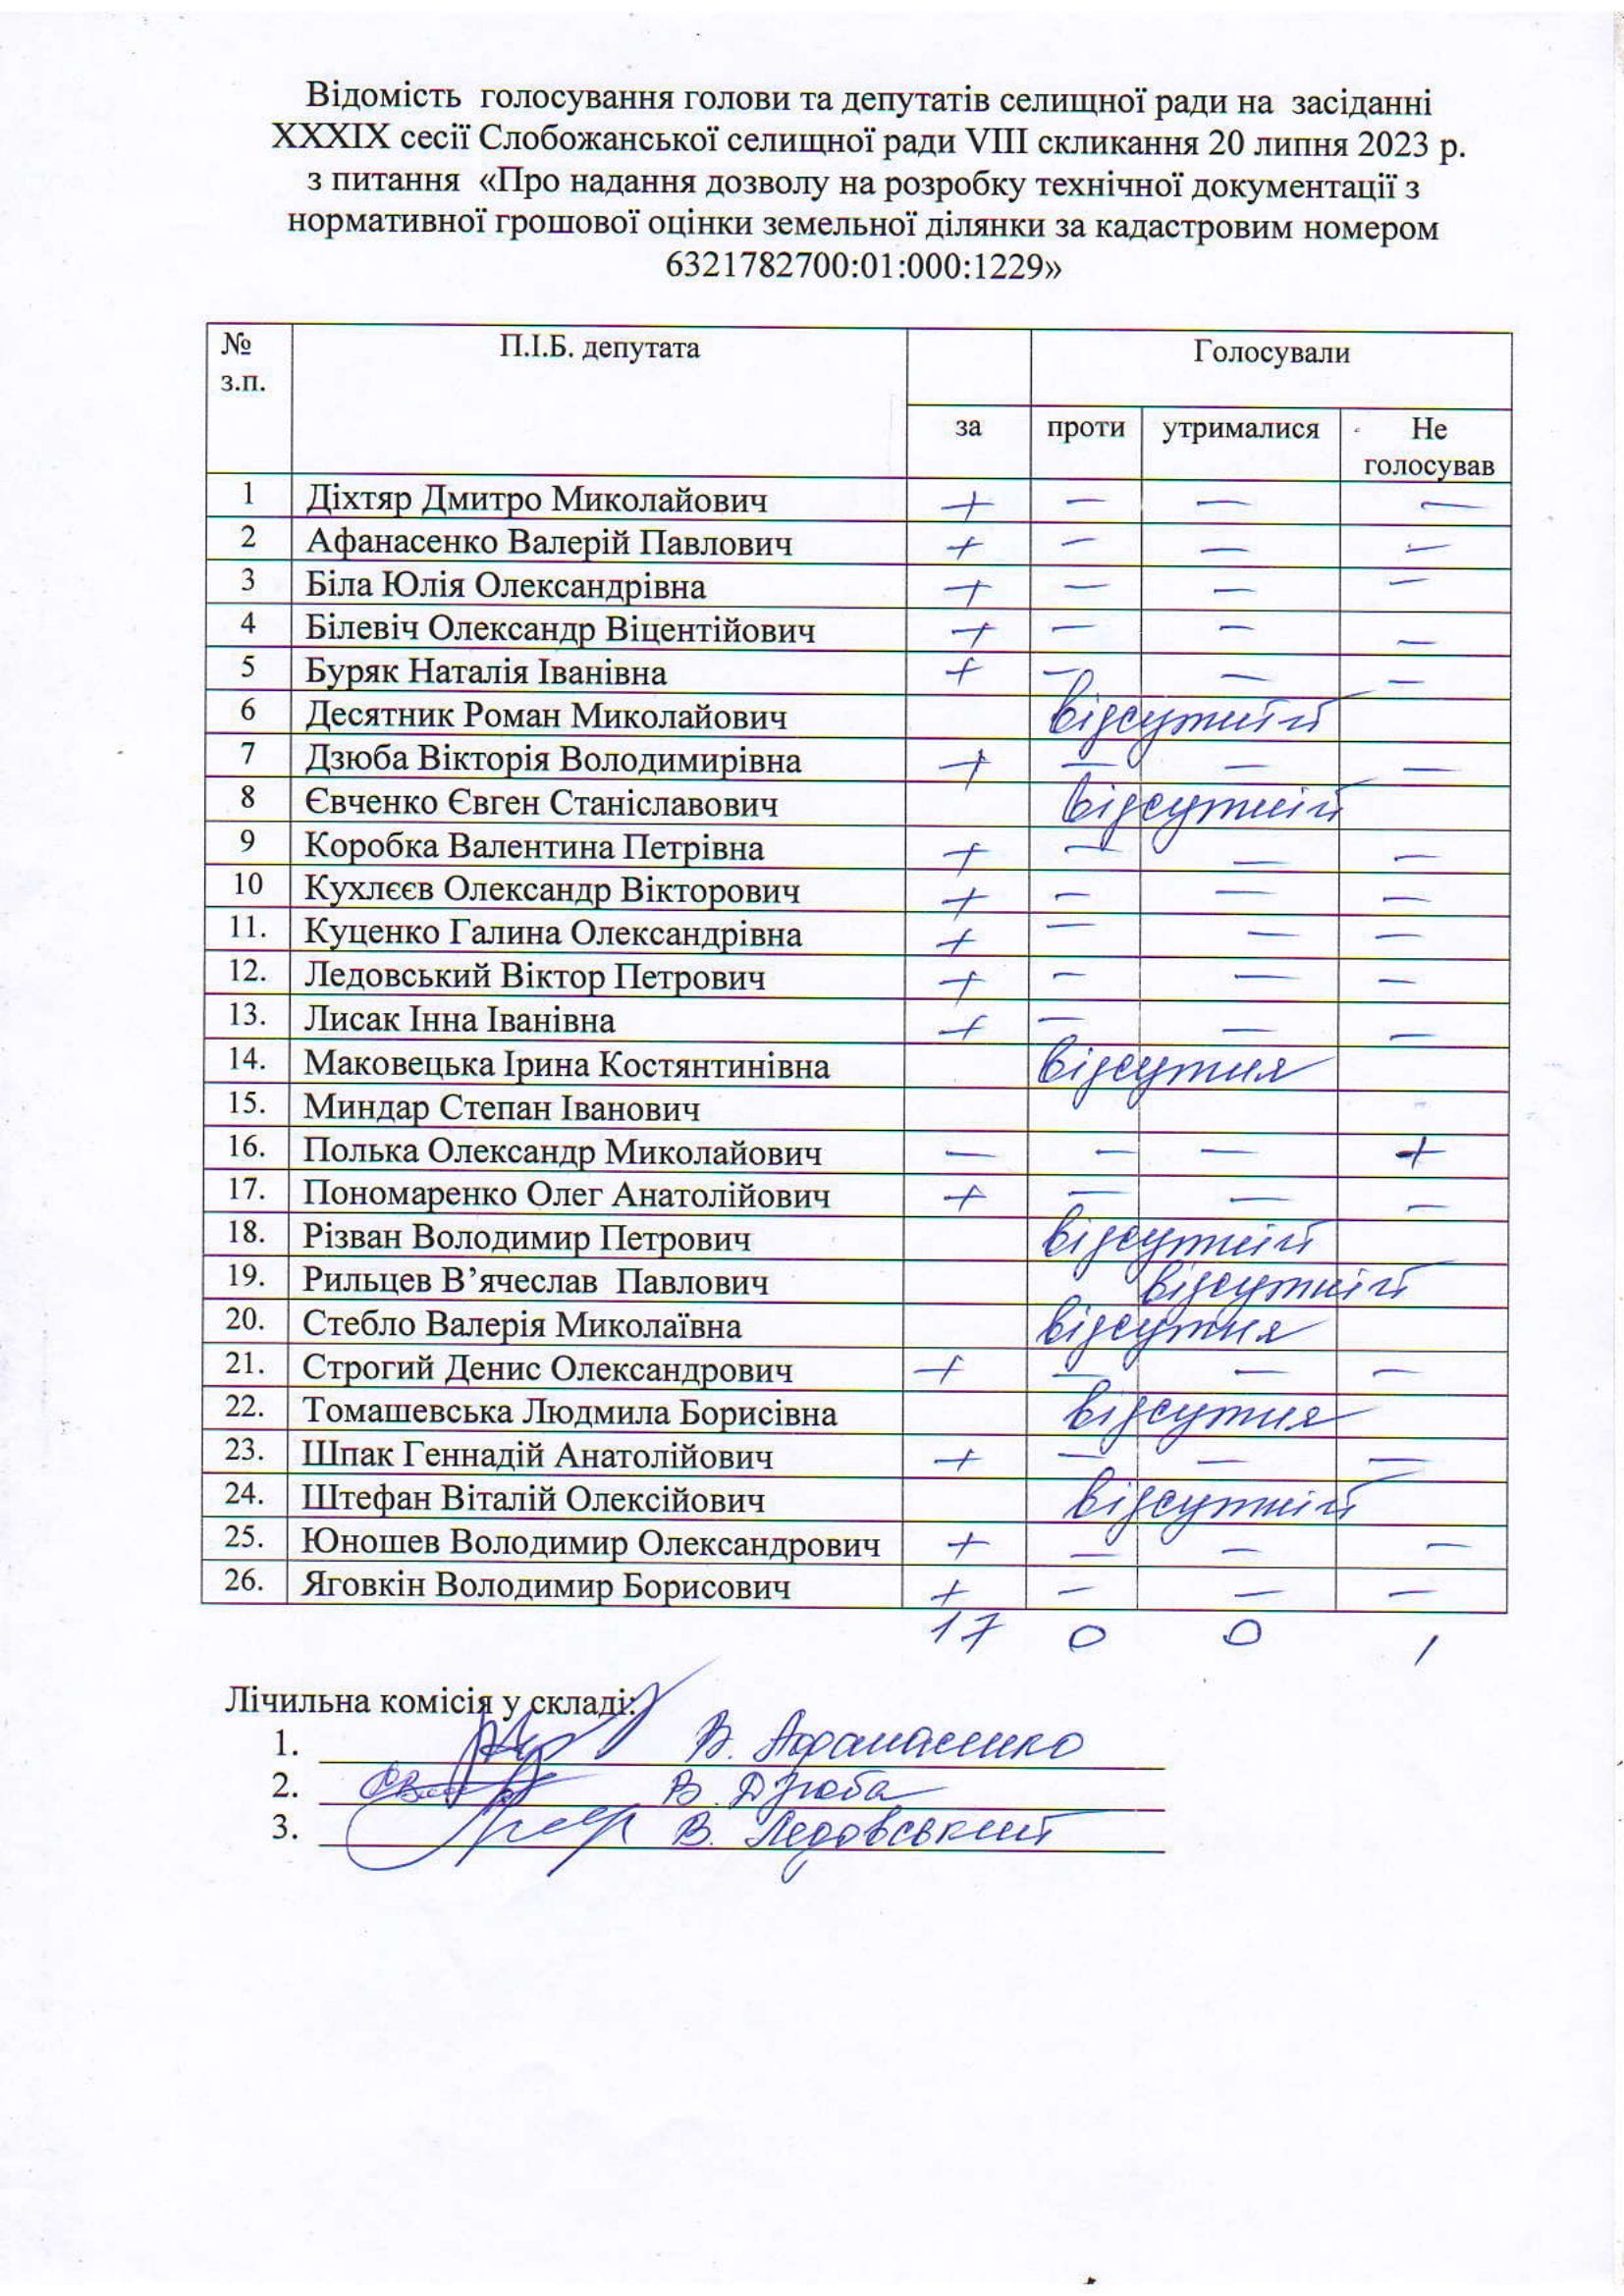 Відомість голосування голови та депутатів селищної ради на засіданні
XXXIX сесії Слобожанської селищної ради VIII скликання 20 липня 2023 р.
з питання «Про надання дозволу на розробку технічної документації з
нормативної грошової оцінки земельної ділянки за кадастровим номером
6321782700:01:000:1229»
№ з.п. П.І.Б. депутата Голосували
за проти утрималися Не голосував
1 Діхтяр Дмитро Миколайович + — — —
2 Афанасенко Валерій Павлович + — — —
3 Біла Юлія Олександрівна + — — —
4 Білевіч Олександр Віцентійович + — — —
5 Буряк Наталія Іванівна + — — —
6 Десятник Роман Миколайович відсутній
7 Дзюба Вікторія Володимирівна + — — —
8 Євченко Євген Станіславович відсутній
9 Коробка Валентина Петрівна + — — —
10 Кухлєєв Олександр Вікторович + — — —
11. Куценко Галина Олександрівна + — — —
12. Ледовський Віктор Петрович + — — —
13. Лисак Інна Іванівна + — — —
14. Маковецька Ірина Костянтинівна відсутня
15. Миндар Степан Іванович
16. Полька Олександр Миколайович — — — +
17. Пономаренко Олег Анатолійович + — — —
18. Різван Володимир Петрович відсутній
19. Рильцев В’ячеслав Павлович відсутній
20. Стебло Валерія Миколаївна відсутня
21. Строгий Денис Олександрович + — — —
22. Томашевська Людмила Борисівна відсутня
23. Шпак Геннадій Анатолійович + — — —
24. Штефан Віталій Олексійович відсутній
25. Юношев Володимир Олександрович + — — —
26. Яговкін Володимир Борисович + — — —
17 0 0 1
Лічильна комісія у складі:
1. В. Афанасенко
2. В. Дзюба
3. В. Ледовський